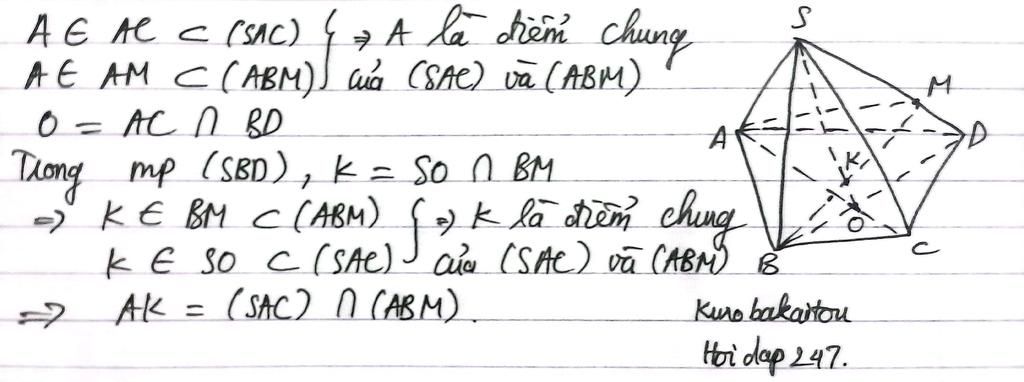 A ∈ AC ⊂ (SAC) } ⇒ A là điểm chung
A ∈ AM ⊂ (ABM) } của (SAC) và (ABM)
O = AC ∩ BD
Trong mp (SBD), K = SO ∩ BM
⇒ K ∈ BM ⊂ (ABM) } ⇒ K là điểm chung
K ∈ SO ⊂ (SAC) } của (SAC) và (ABM)
⇒ AK = (SAC) ∩ (ABM).
S
M
A
D
K
O
B
C
Kuro bakaitou
Hoi dap 247.